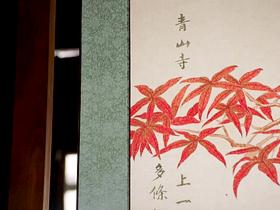 青山寺
上一
多條